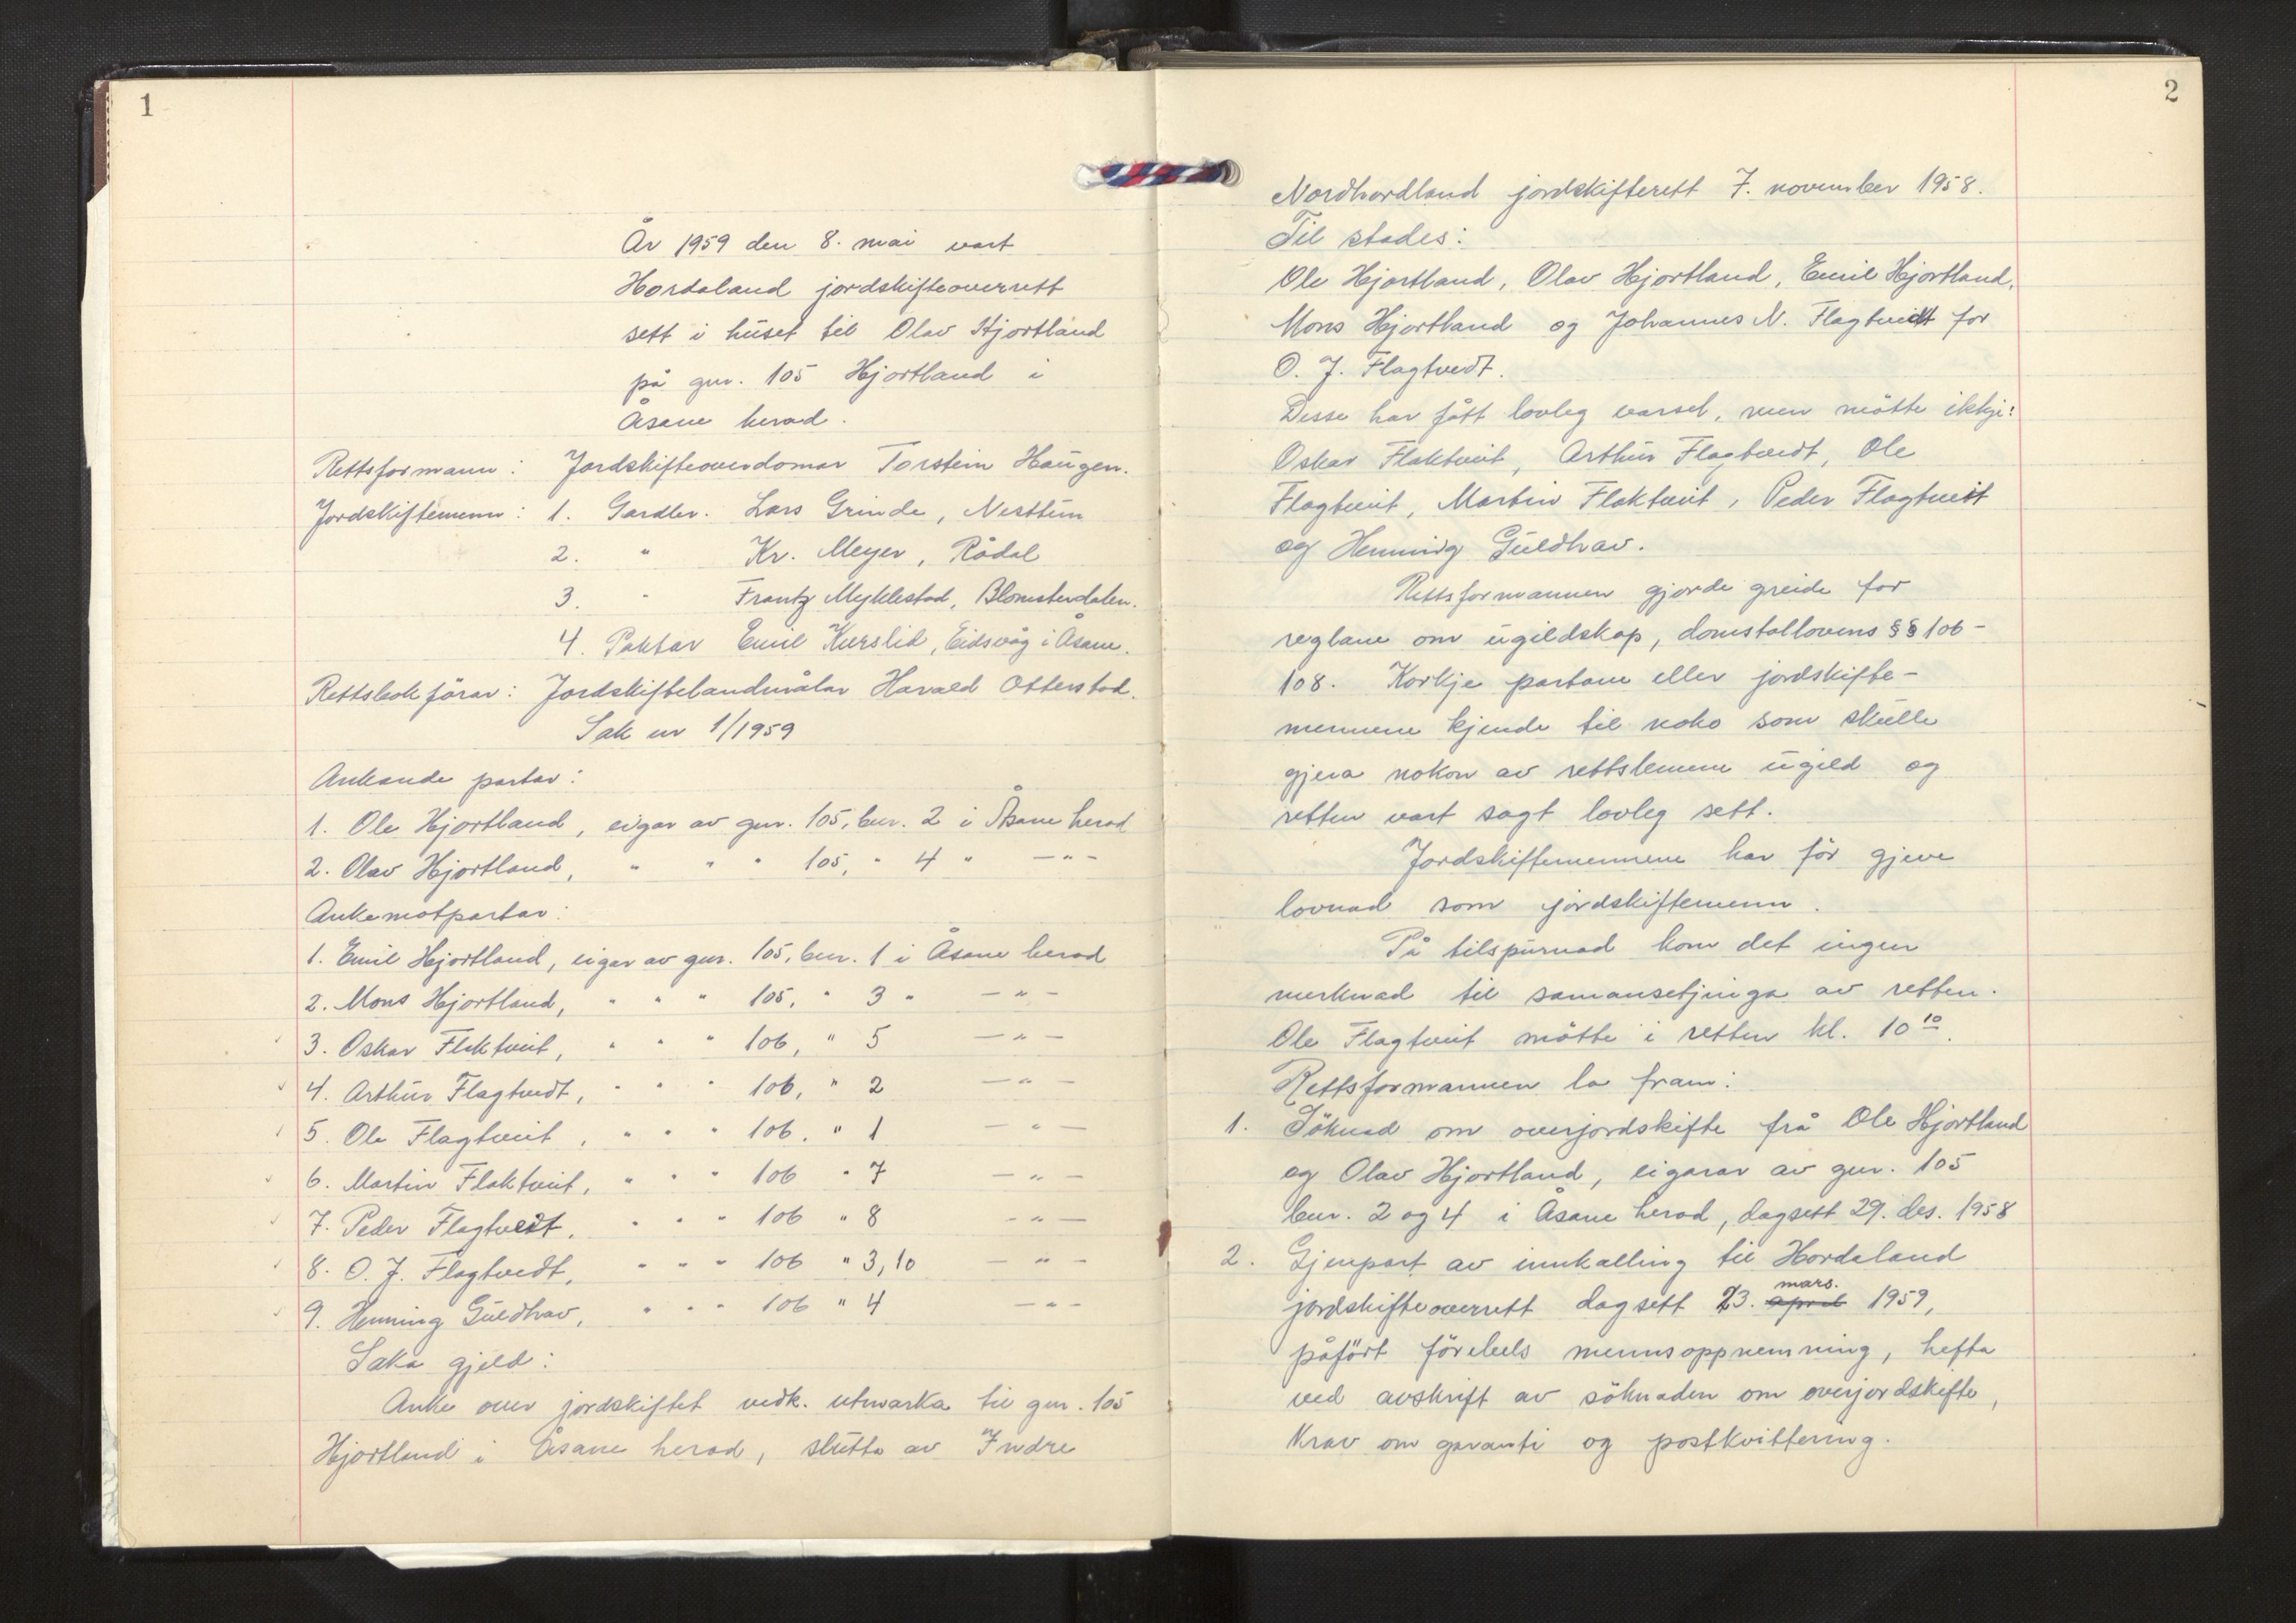 1
År 1959 den 8. mai vart
Hordaland jordskifteoverrett
sett i huset til Olav Hjortland
på gnr. 105 Hjortland i
Åsane herad.
Rettsformann: Jordskifteoverdomar Torstein Haugen.
Jordskiftemenn: 1. Gardbr. Lars Grinde, Nesttun
2. " Kr. Meyer, Rådal
3. " Frantz Myklestad, Blomsterdalen.
4. Paktar Emil Kurslid, Eidsvåg i Åsane.
Rettsbokförar: Jordskiftelandmålar Harald Otterstad.
Sak nr 1/1959
Ankande partar:
1. Ole Hjortland, eigar av gnr. 105, bnr. 2 i Åsane herad
2. Olav Hjortland, " " " 105, " 4 " —"—
Ankemotpartar:
1. Emil Hjortland, eigar av gnr. 105, bnr. 1 i Åsane herad
2. Mons Hjortland, " " " 105, " 3 " —"—
3. Oskar Flaktveit, " " " 106, " 5 —"—
4. Arthur Flagtvedt, " " " 106, " 2 —"—
5. Ole Flagtveit, " " " 106, " 1 —"—
6. Martin Flaktveit, " " " 106 " 7 —"—
7. Peder Flagtvedt, " " " 106 " 8 —"—
8. O. J. Flagtvedt, " " " 106 " 3,10 —"—
9. Henning Guldhav, " " " 106 " 4 —"—
Saka gjeld:
Anke over jordskiftet vedk. utmarka til gnr. 105
Hjortland i Åsane herad, slutta av Indre
2
Nordhordland jordskifterett 7. november 1958.
Til stades:
Ole Hjortland, Olav Hjortland, Emil Hjortland,
Mons Hjortland og Johannes N. Flagtvedt for
O. J. Flagtvedt.
Desse har fått lovleg varsel, men mötte ikkje:
Oskar Flaktveit, Arthur Flagtvedt, Ole
Flagtveit, Martin Flaktveit, Peder Flagtveit
og Henning Guldhav.
Rettsformannen gjorde greide for
reglane om ugildskap, domstollovens §§ 106-
108. Korkje partane eller jordskifte-
mennene kjende til noko som skulle
gjera nokon av rettslemene ugild og
retten vart sagt lovleg sett.
Jordskiftemennene har för gjeve
lovnad som jordskiftemenn.
På tilspurnad kom det ingen
merknad til samansetjinga av retten.
Ole Flagtveit mötte i retten kl. 10 10.
Rettsformannen la fram:
1. Söknad om overjordskifte frå Ole Hjortland
og Olav Hjortland, eigarar av gnr. 105
bnr. 2 og 4 i Åsane herad, dagsett 29. des. 1958
2. Gjenpart av innkalling til Hordaland
mars.
jordskifteoverrett dagsett 23. april 1959,
påfört förebels mennsoppnemning, hefta
ved avskrift av söknaden om overjordskifte,
krav om garanti og postkvittering.